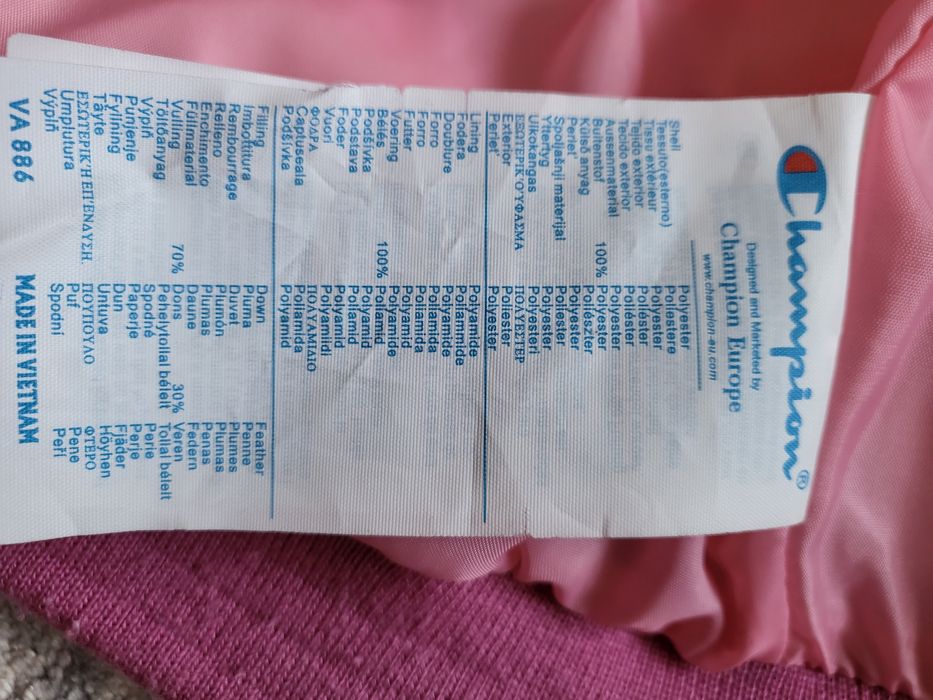 Champion®
Designed and Marketed by
Champion Europe
www.champion-eu.com
Shell Polyester
Tessuto(esterno) Poliestere
Tissu extérieur Polyester
Tejido exterior Poliéster
Tecido exterior Poliéster
Aussenmaterial Polyester
Buitenstof 100% Polyester
Külső anyag Poliészter
Perieť Polyester
Spoljašnji materijal Poliester
Yttertyg Polyester
Ulkokangas Polyesteri
ΕΞΩΤΕΡΙΚΌ ΎΦΑΣΜΑ ΠΟΛΥΕΣΤΕΡ
Exterior Poliester
Perieť Polyester
Lining Polyamide
Fodera Poliammide
Doublure Polyamide
Forro Poliamida
Forro Poliamida
Futter Polyamid
Voering Polyamide
Bélés 100% Poliamid
Podšívka Polyamid
Podstava Poliamid
Foder Polyamid
Vuori Polyamidi
ΦΟΔΡΑ ΠΟΛΥΑΜΙΔΙΟ
Capluseala Poliamida
Podšívka Polyamid
Filling Down Feather
Imbottitura Piuma Penne
Rembourrage Duvet Plumes
Relleno Plumón Plumas
Enchimento Plumas Penas
Füllmaterial Daune Federn
Vulling 70% Dons 30% Veren
Töltőanyag Pehelytollal bélelt Tollal bélelt
Výplň Spodné Perie
Punjenje Paperje Perje
Fyllning Dun Fjäder
Täyte Untuva Höyhen
ΕΣΩΤΕΡΙΚΉ ΕΠΈΝΔΥΣΗ ΠΟΥΠΟΥΛΟ ΦΤΕΡΟ
Umplutura Puf Pene
Výplň Spodní Peří
VA 886 MADE IN VIETNAM